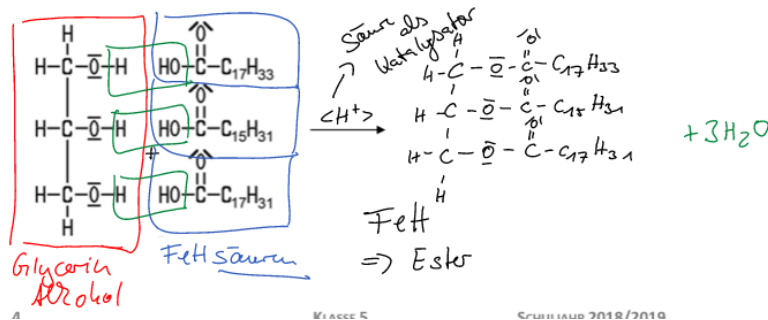 H H–C–O–H HO–C–C₁₇H₃₃ O
H–C–O–H HO–C–C₁₅H₃₁ O
+
H–C–O–H HO–C–C₁₇H₃₁ O
H
Glycerin
Alkohol
Fettsäuren
Säure als
Katalysator
<H⁺>
H H–C–O–C–C₁₇H₃₃ |O|
H–C–O–C–C₁₅H₃₁ |O|
H–C–O–C–C₁₇H₃₁ |O|
H
+3H₂O
Fett
=> Ester
4 KLASSE 5 SCHULJAHR 2018/2019